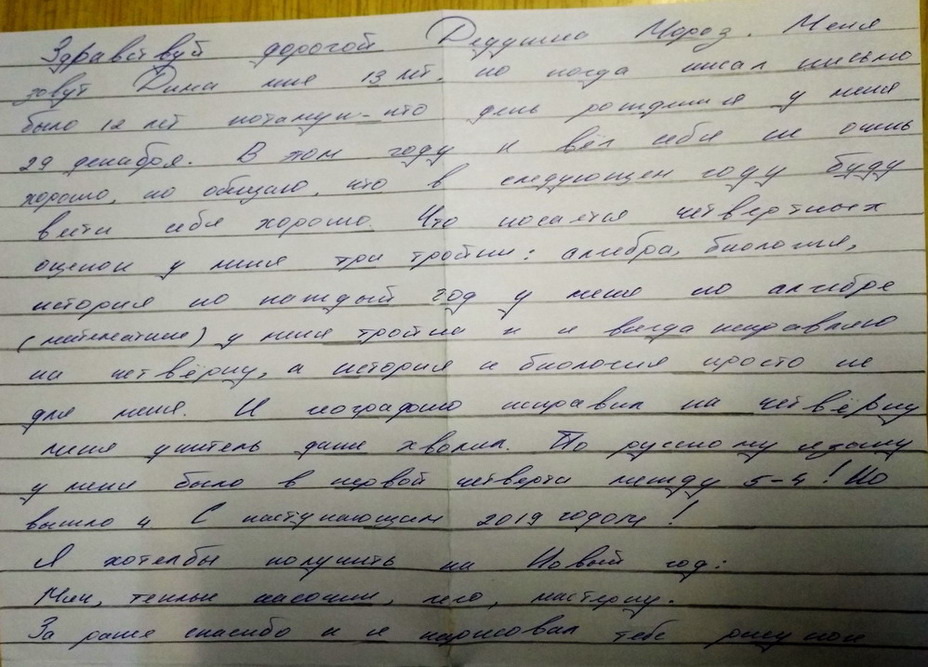 Здравствуй дорогой Дедушка Мороз. Меня
зовут Дима мне 13 лет, но когда писал письмо
было 12 лет потамук-что день рождения у меня
29 декабря. В том году я вёл себя не очень
хорошо, но обищаю, что в следующем году буду
вести себя хорошо. Что косается четвертных
оценок у меня три тройки: алгебра, биология,
история но каждый год у меня по алгебре
(математике) у меня тройка и я всегда исправляю
на четвёрку, а история и биология просто не
для меня. И географию исправил на четвёрку
меня учитель даже хвалил. По русскому языку
у меня было в первой четверти между 5-4! Но
вышло 4 С наступающим 2019 годом!
Я хотелбы получить на Новый год:
Мяч, теплые носочки, лего, мастерку.
За ранее спасибо и я нарисовал тебе рисунок